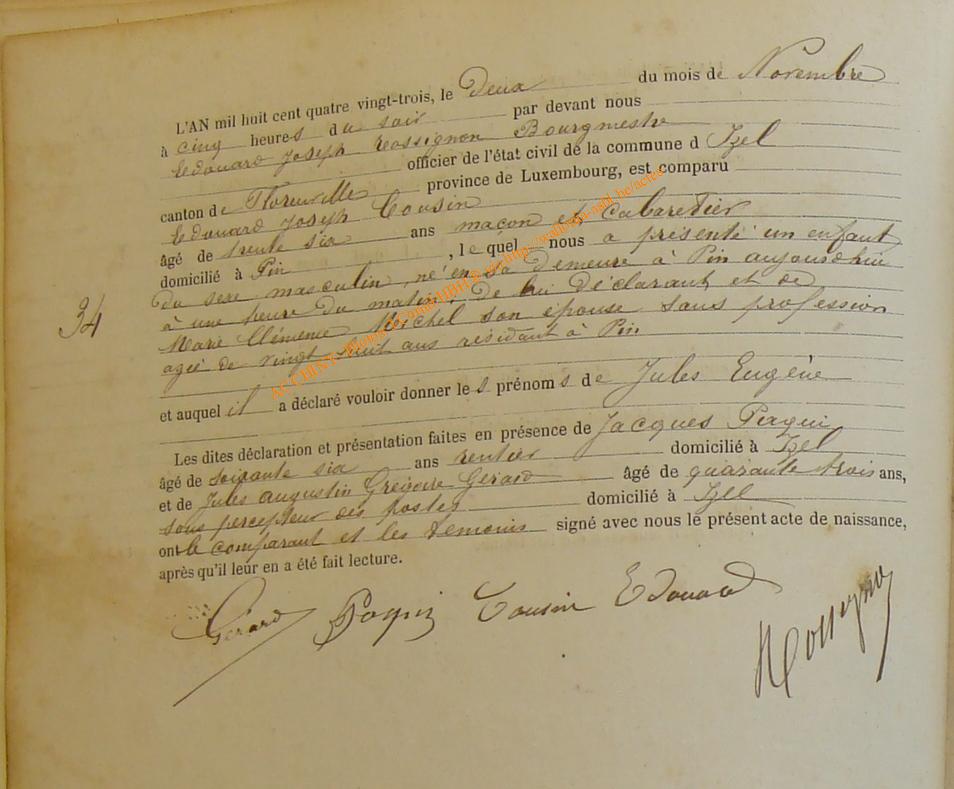 L'AN mil huit cent quatre vingt-trois, le Deux du mois de Novembre
à cinq heures du soir par devant nous
Edouard Joseph Rossignon Bourgmestre
officier de l'état civil de la commune d Izel
canton de Florenville province de Luxembourg, est comparu
Edouard Joseph Cousin
âgé de trente six ans maçon et Cabaretier
domicilié à Pin , lequel nous a présenté un enfant
du sexe masculin, né en sa demeure à Pin aujourd'hui
à une heure du matin, de lui déclarant et de
34
Marie Clémence Michel son épouse, sans profession
agée de vingt huit ans résidant à Pin
et auquel il a déclaré vouloir donner les prénoms de Jules Eugène
Les dites déclaration et présentation faites en présence de Jacques
âgé de soixante six ans rentier domicilié à Izel
et de Jules augustin Grégoire Gérard âgé de quarante trois ans,
sous percepteur des postes domicilié à Izel
ont le comparant et les temoins signé avec nous le présent acte de naissance,
après qu'il leur en a été fait lecture.
Gérard Cousin Edouard